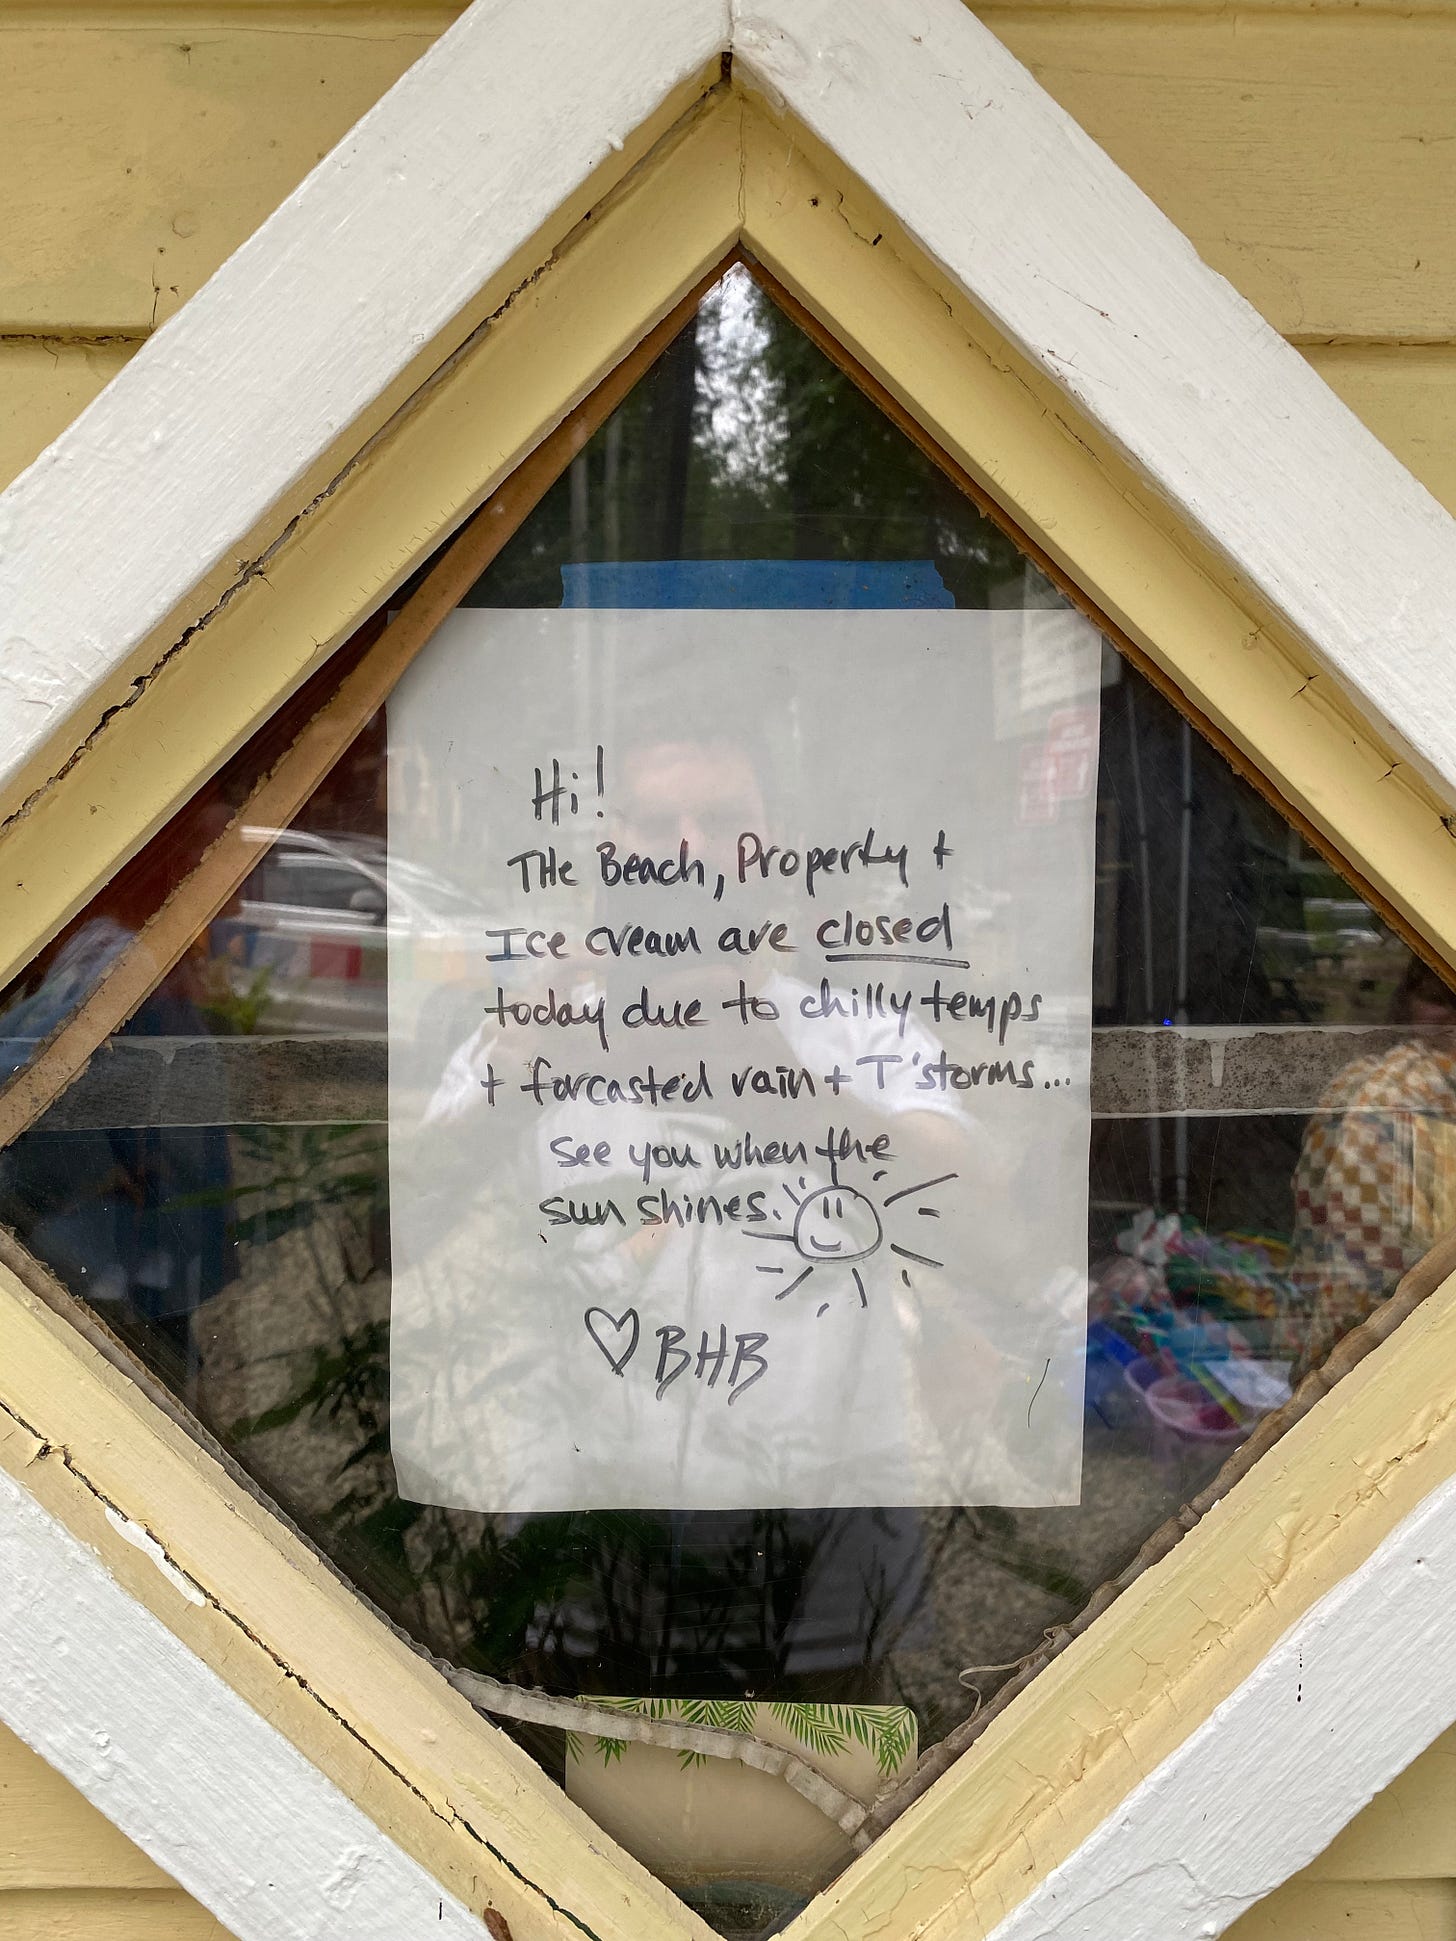 Hi!
THe Beach, Property +
Ice cream are closed
today due to chilly temps
+ forcasted rain + T'storms...
See you when the
sun shines.
♡ BHB